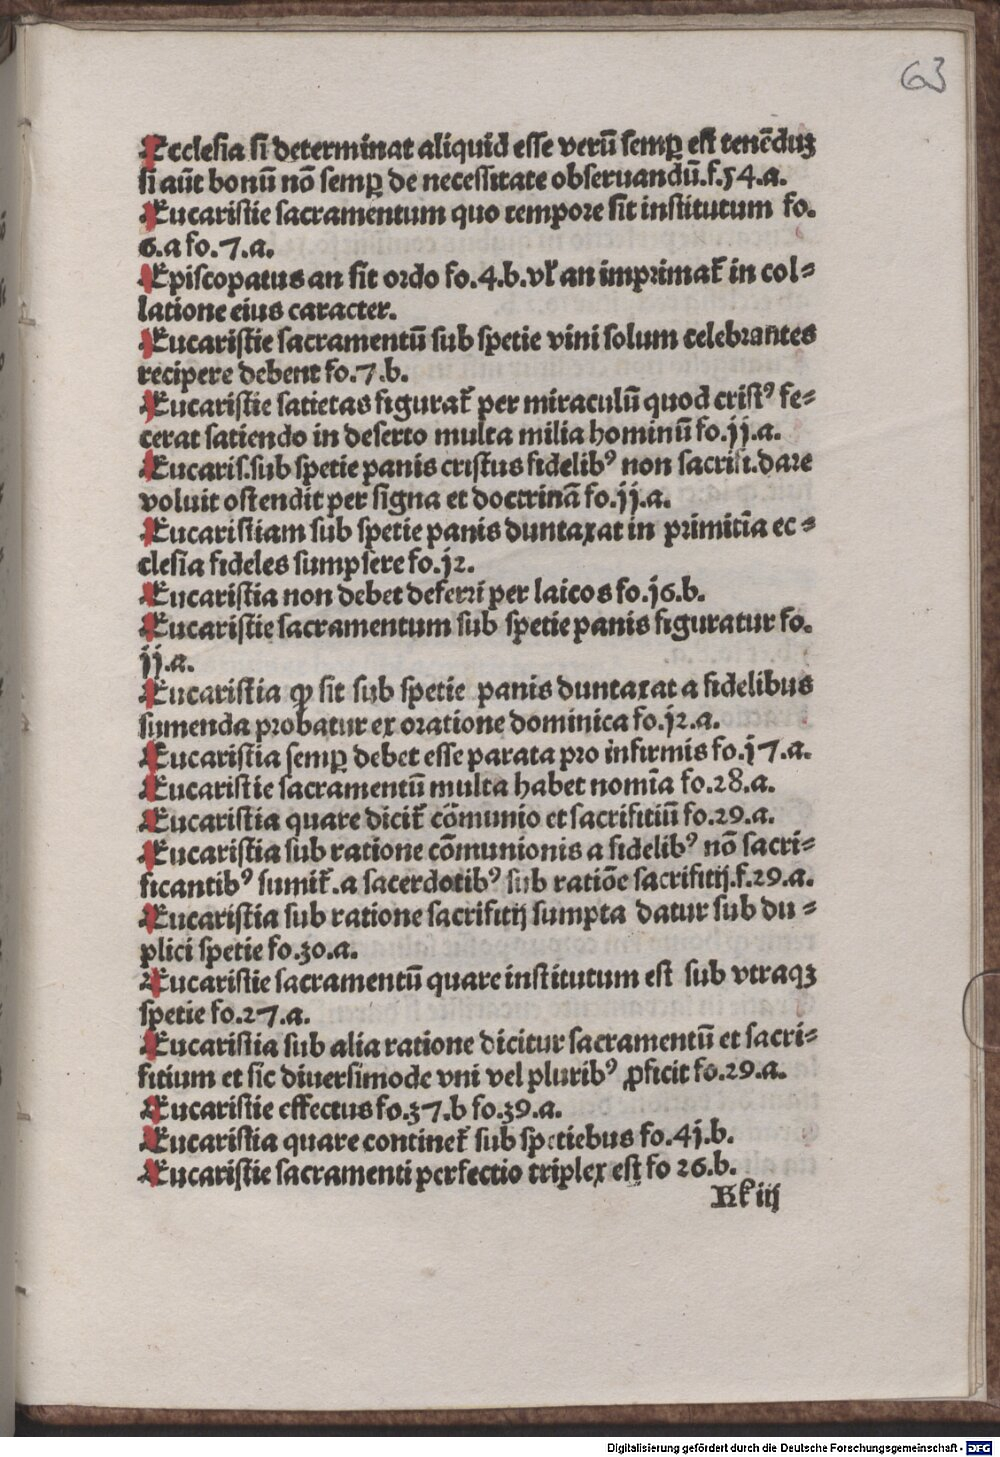 63
Ecclesia si determinat aliquid esse verū semꝑ est tenēduꝫ
si aūt bonū nō semꝑ de necessitate obseruandū.f.54.a.
Eucaristie sacramentum quo tempore sit institutum fo.
6.a fo.7.a.
Episcopatus an sit ordo fo.4.b.vl̄ an imprimat̄ in col⸗
latione eius caracter.
Eucaristie sacramentū sub spetie vini solum celebrantes
recipere debent fo.7.b.
Eucaristie satietas figurat̄ per miraculū quod cristꝰ fe⸗
cerat satiendo in deserto multa milia hominū fo.jj.a.
Eucaris.sub spetie panis cristus fidelibꝰ non sacrifi.dare
voluit ostendit per signa et doctrinā fo.jj.a.
Eucaristiam sub spetie panis duntaxat in primitīa ec⸗
clesia fideles sumpsere fo.j2.
Eucaristia non debet deferri per laicos fo.j6.b.
Eucaristie sacramentum sub spetie panis figuratur fo.
jj.a.
Eucaristia ꝙ sit sub spetie panis duntaxat a fidelibus
sumenda probatur ex oratione dominica fo.j2.a.
Eucaristia semꝑ debet esse parata pro infirmis fo.j7.a.
Eucaristie sacramentū multa habet nomīa fo.28.a.
Eucaristia quare dicit̄ cōmunio et sacrifitiū fo.29.a.
Eucaristia sub ratione cōmunionis a fidelibꝰ nō sacri⸗
ficantibꝰ sumit̄.a sacerdotibꝰ sub ratiōe sacrifitij.f.29.a.
Eucaristia sub ratione sacrifitij sumpta datur sub du⸗
plici spetie fo.30.a.
Eucaristie sacramentū quare institutum est sub vtraqꝫ
spetie fo.27.a.
Eucaristia sub alia ratione dicitur sacramentū et sacri⸗
fitium et sic diuersimode vni vel pluribꝰ ꝓficit fo.29.a.
Eucaristie effectus fo.37.b fo.39.a.
Eucaristia quare continet̄ sub spetiebus fo.4j.b.
Eucaristie sacramenti perfectio triplex est fo 26.b.
Digitalisierung gefördert durch die Deutsche Forschungsgemeinschaft - DFG